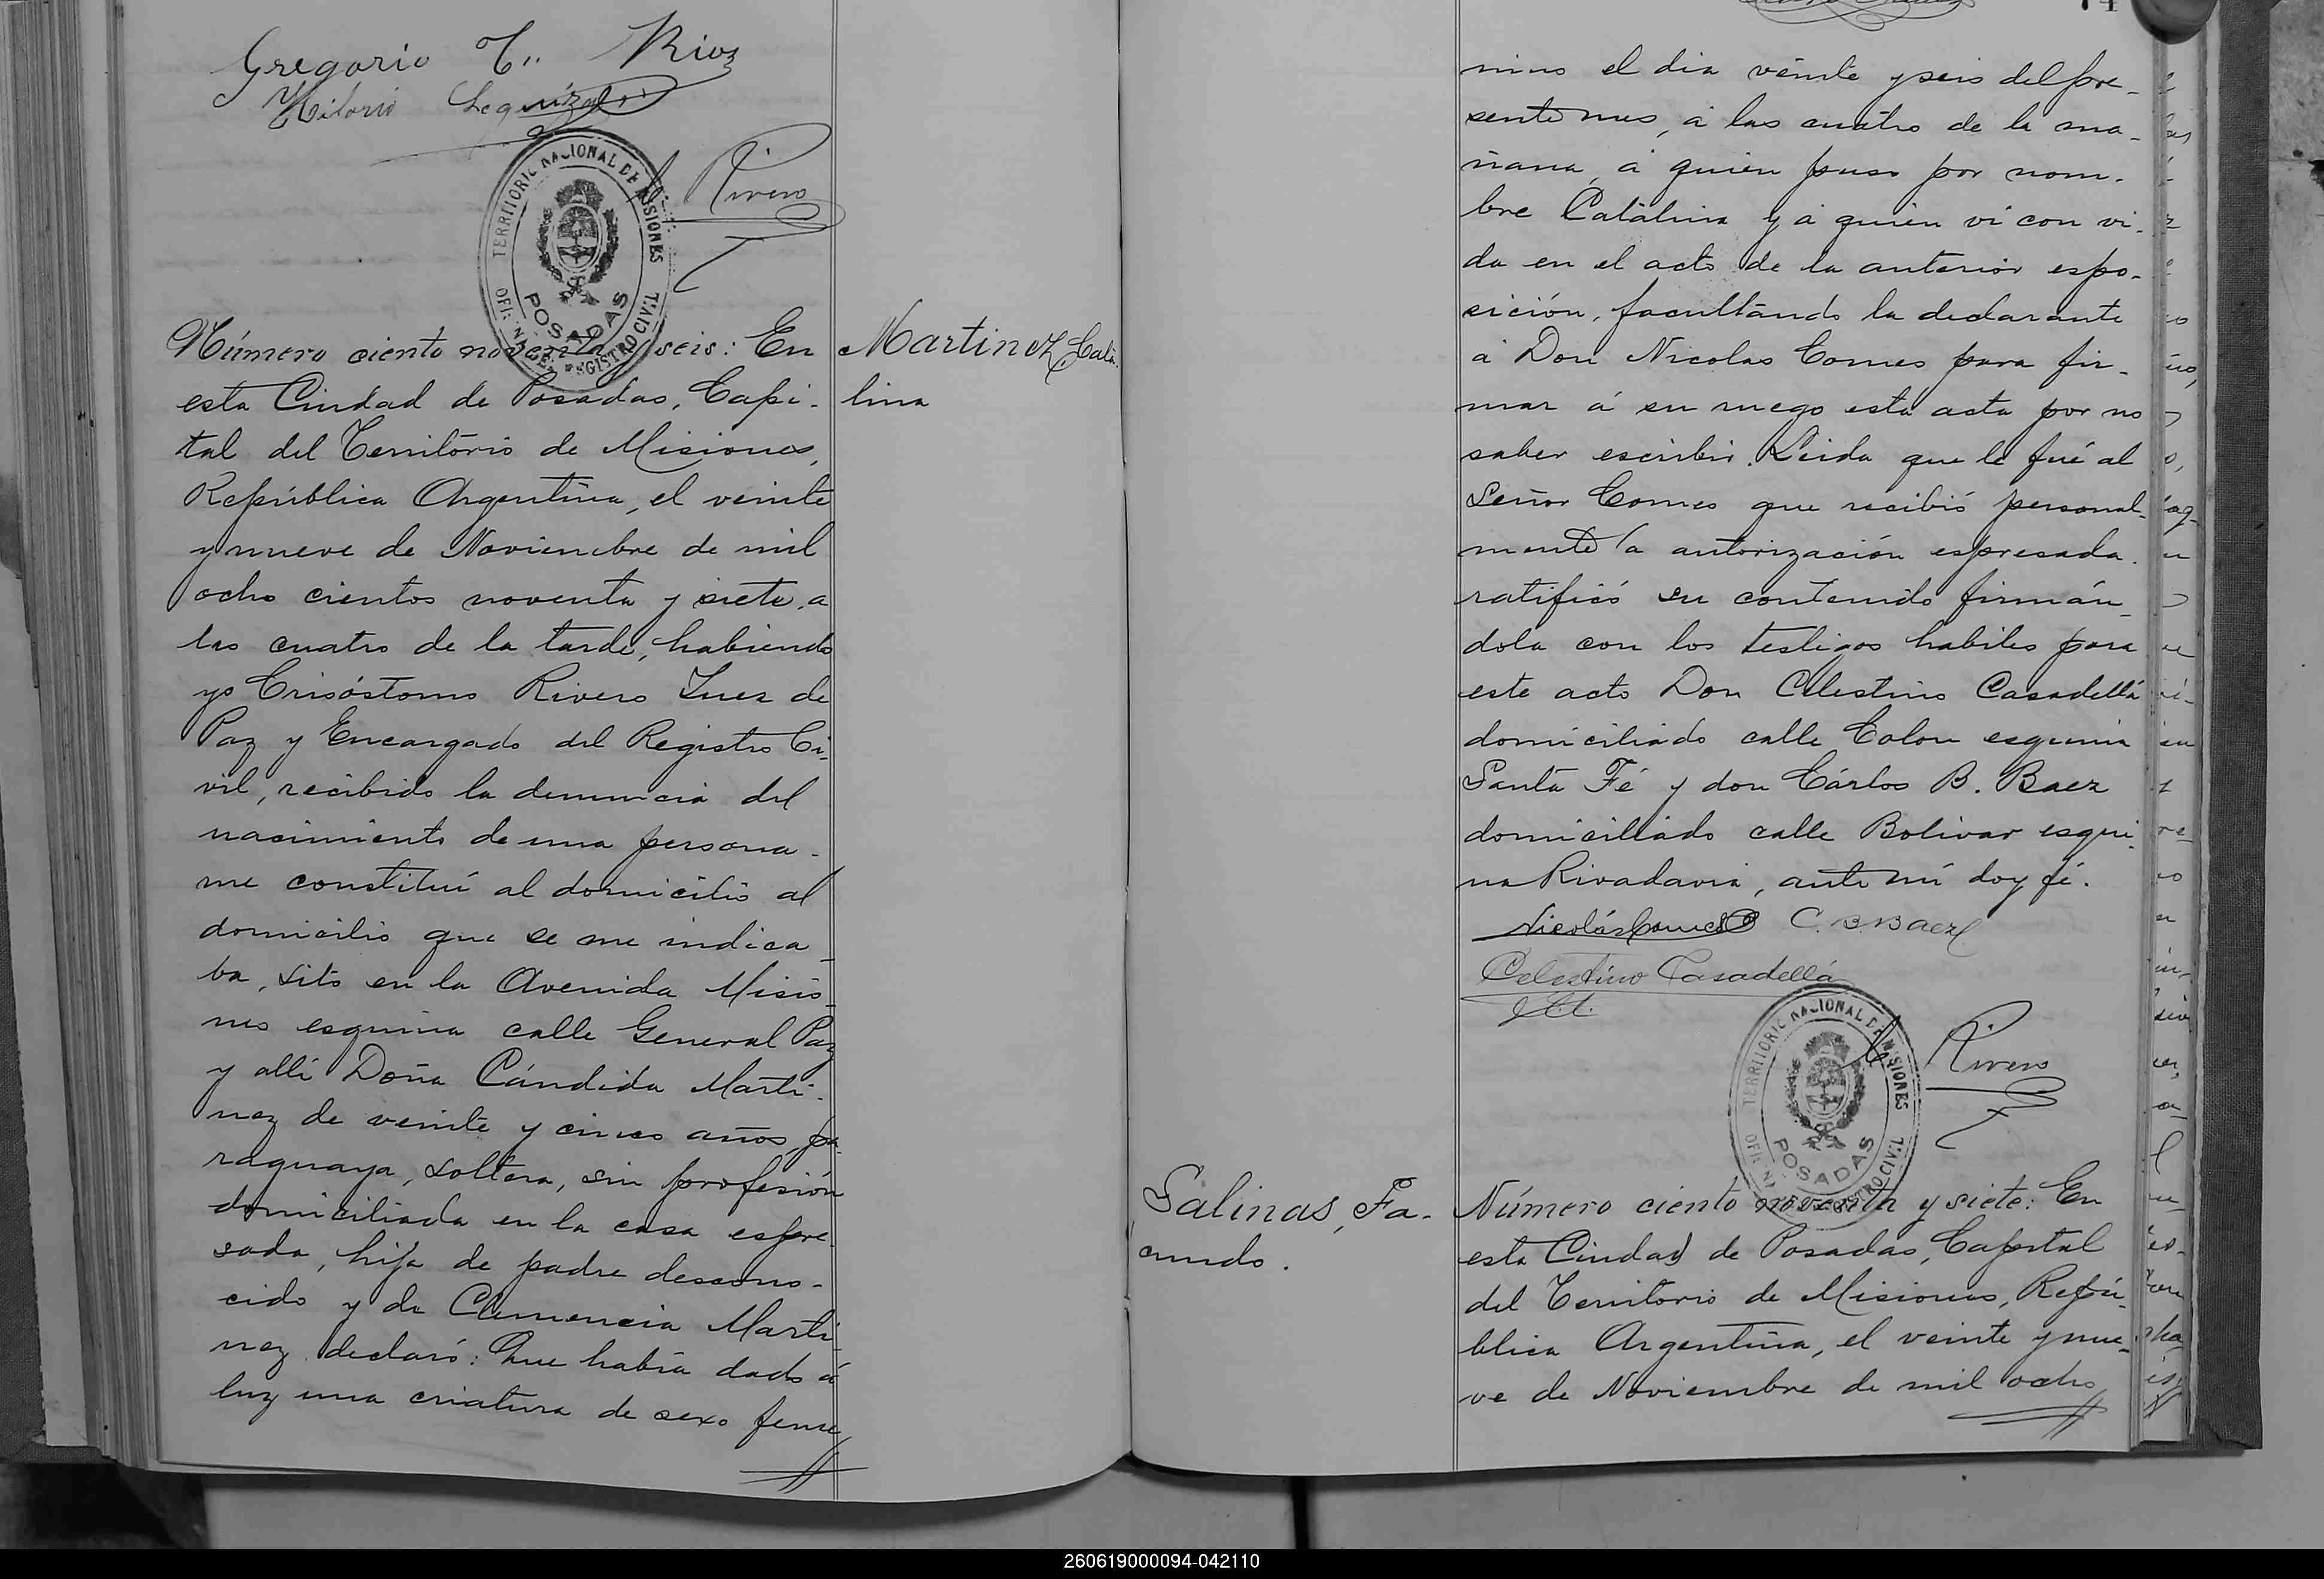 Gregorio T. Rios
Hilario Leguizamón
Rivero
TERRITORIO NACIONAL DE MISIONES
POSADAS
OFICINA DEL REGISTRO CIVIL
Martinez, Cata-
lina
Número ciento noventa y seis: En
esta Ciudad de Posadas, Capi-
tal del Territorio de Misiones,
República Argentina, el veinte
y nueve de Noviembre de mil
ocho cientos noventa y siete, a
las cuatro de la tarde, habiendo
yo Crisóstomo Rivero Juez de
Paz y Encargado del Registro Ci-
vil, recibido la denuncia del
nacimiento de una persona-
me constituí al domicilio al
domicilio que se me indica-
ba, sito en la Avenida Misio-
nes esquina calle General Paz
y allí Doña Cándida Marti-
nez de veinte y cinco años, pa-
raguaya, soltera, sin profesión
domiciliada en la casa espre-
sada, hija de padre descono-
cido y de Clemencia Marti-
nez declaró: Que había dado á
luz una criatura de sexo feme
nino el dia veinte y seis del pre-
sente mes, á las cuatro de la ma-
ñana, á quien puso por nom-
bre Catalina y á quien ví con vi-
da en el acto de la anterior espo-
sición, facultando la declarante
á Don Nicolas Comes para fir-
mar á su ruego esta acta por no
saber escribir. Leida que le fué al
Señor Comes que recibió personal-
mente la autorización espresada.
ratificó su contenido firmán-
dola con los testigos habiles para
este acto Don Celestino Casadellá
domiciliado calle Colon esquina
Santa Fé y don Cárlos B. Baez
domiciliado calle Bolivar esqui-
na Rivadavia, ante mí doy fé.
Nicolás Comes C. B. Baez
Celestino Casadellá
Rivero
TERRITORIO NACIONAL DE MISIONES
POSADAS
OFICINA DEL REGISTRO CIVIL
Salinas, Fa-
cundo.
Número ciento noventa y siete: En
esta Ciudad de Posadas, Capital
del Territorio de Misiones, Repú-
blica Argentina, el veinte y nue-
ve de Noviembre de mil ocho
260619000094-042110